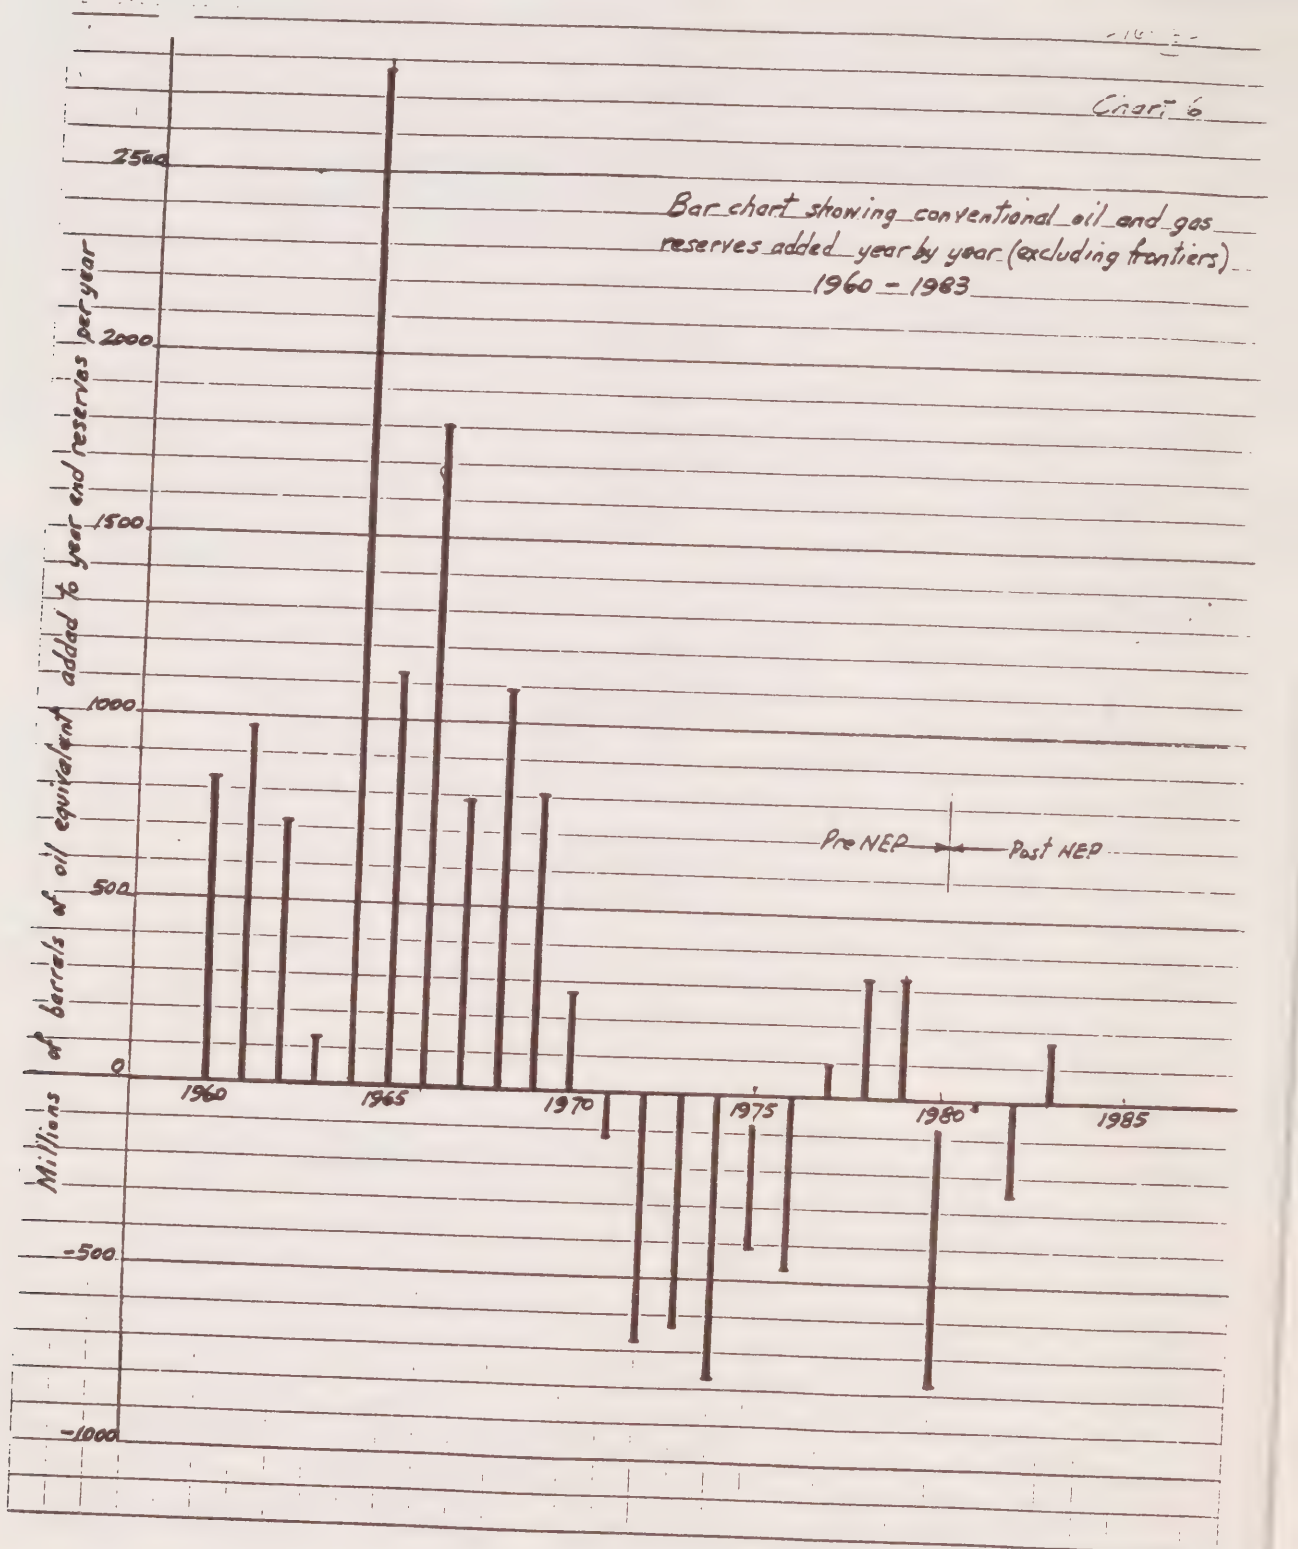 Chart 6
Bar chart showing conventional oil and gas
reserves added year by year (excluding frontiers)
1960 - 1983
Millions of barrels of oil equivalent added to year end reserves per year
2500
2000
1500
1000
500
0
-500
-1000
Pre NEP
Post NEP
1960
1965
1970
1975
1980
1985